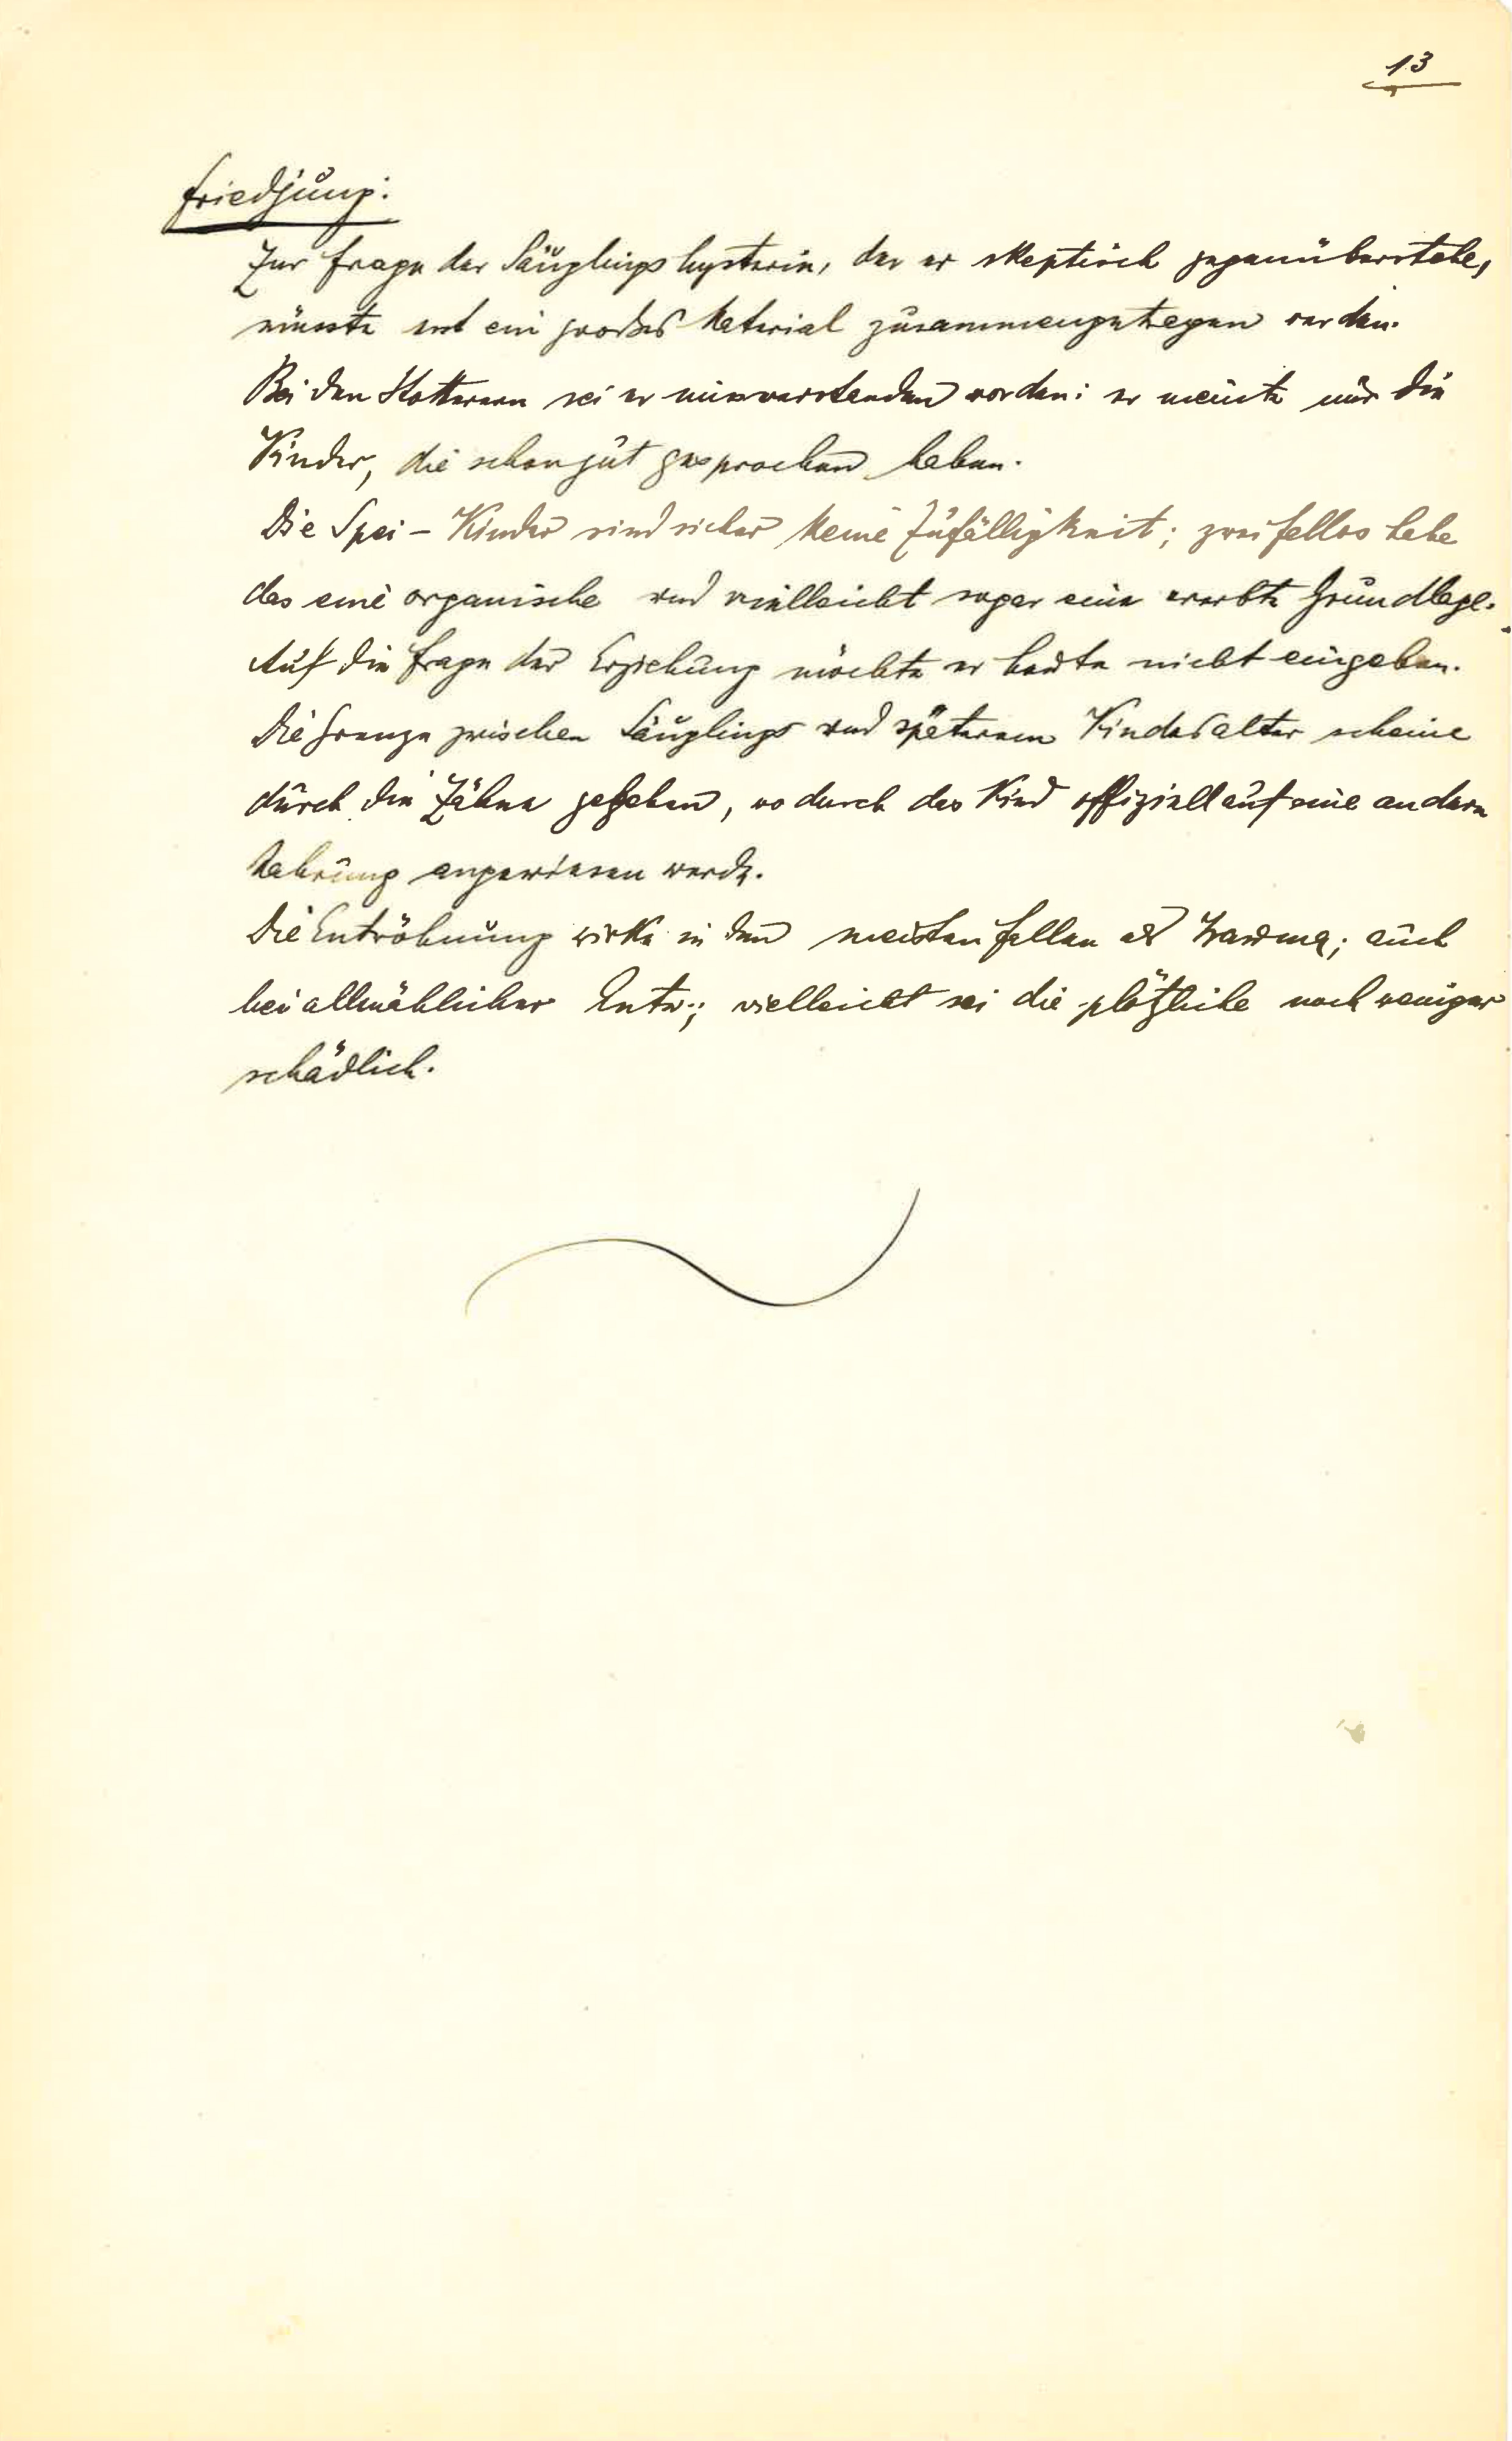 13
Friedjung:
Zur Frage der Säuglingshysterie, der er skeptisch gegenüberstehe,
müsste erst ein großes Material zusammengetragen werden.
Bei den Stotterern sei er missverstanden worden: er meinte nur die
Kinder, die schon gut gesprochen haben.
Die Spei-Kinder sind sicher keine Zufälligkeit; zweifellos habe
das eine organische und vielleicht sogar eine ererbte Grundlage.
Auf die Frage der Erziehung möchte er heute nicht eingehen.
Die Grenze zwischen Säuglings und späterem Kindesalter scheine
durch die Zähne gegeben, wodurch das Kind offiziell auf eine andere
Nahrung angewiesen werde.
Die Entwöhnung wirke in den meisten Fällen als Trauma; auch
bei allmählicher Entw.; vielleicht sei die plötzliche noch weniger
schädlich.